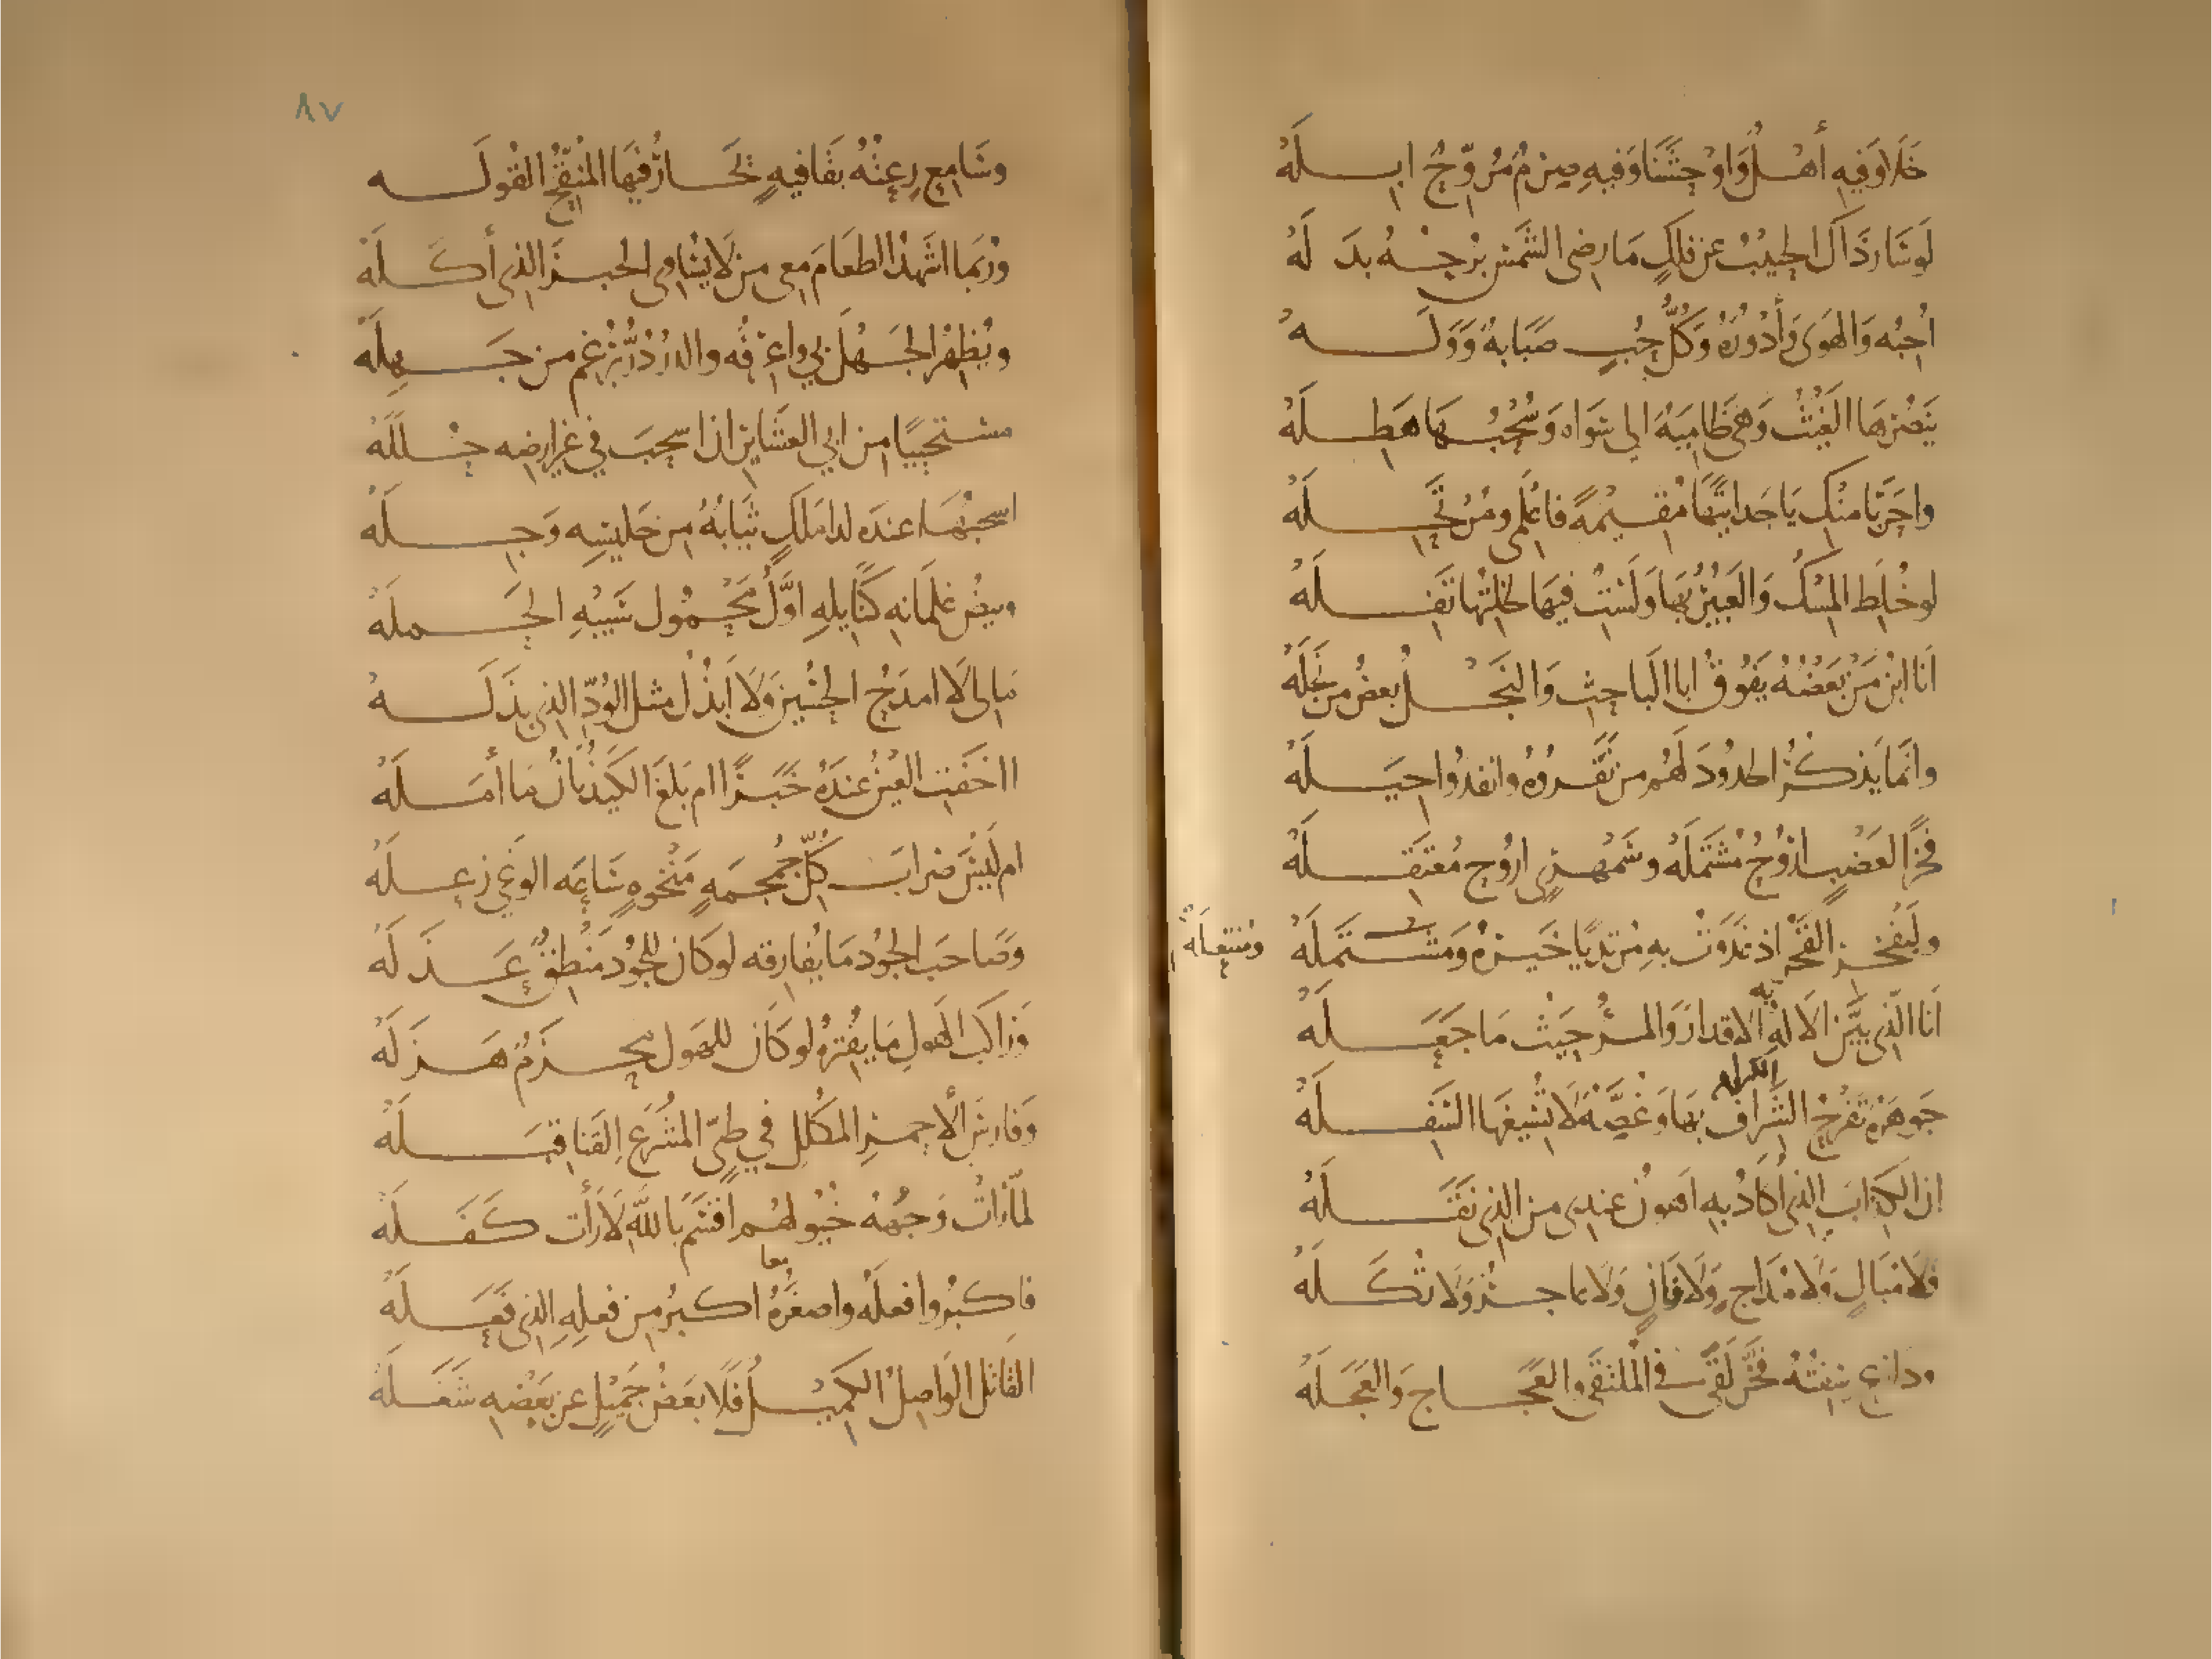 خَلَا وَفيهِ أهْلٌ وَاوْحَشَنَا وَفيهِ صِرْمٌ مُرَوَّحٌ ابِلَهُ
لَوسَارَ ذَاكَ الحبيْبُ عن فلكٍ مَا رضى الشمْسَ بُرْجُهُ بدَلَهُ
اُحِبُّه وَالهَوَى وَأَدْوُرَهُ وَكُلُّ حُبٍّ صَبَابةٌ وَوَلَهُ
يَنصُرهَا الغَيْثُ وَهى ظَامِيَةٌ الى سَوَاه وَسُحْبُهَا هَطِلَهُ
واحَرَبَا منْكِ يَا جَدَايتَهَا مُقيمَةً فاعْلَمى ومُرْتَحِلَهُ
لوخُلِطَ المِسْكُ وَالعَبيْرُ بهَا وَلَسْتِ فيهَا لخلتُهَا تَفِلَهُ
اَنَا ابْنُ مَنْ بَعْضُهُ يَفُوقُ ابَا البَاحِثِ وَالنَجْلُ بعضُ من نَجَلَهُ
وانّمَا يَذكُرُ الجدُودَ لَهُم من نَفَرُوهُ وانفدُوا حِيَلَهُ
فخرًا لعَضْبٍ ارُوحُ مُشتَمِلَهُ وسَمْهَرىٍ ارُوح مُعتَقِلَهُ
وليَفْخَرِ الفَخْرُ اذ غَدَوْتُ بهِ مُرْتديًا خَيرَهُ وَمُشتَمِلَهُ ومُنتعِلَهُ
اَنَا الّذى بَيَّنَ الالهُ به الاقدارَ وَالمرْءُ حيْثُ مَا جَعَلَهُ
جَوهَرَةٌ تفْرَحُ الشّرَاف الكرام بهَا وَغُصَّةٌ لَا تُسيغهَا السَّفِلَهُ
ان الكِذابَ الذى اُكَادُ بهِ اهْونُ عندِى من الذى نَقَلَهُ
فَلَا مُبَالٍ وَلَا مُدَاجٍ وَلَا فَانٍ وَلَا عَاجزٌ وَلَا تُكَلَهُ
ودَارعٍ سِفْتُهُ فخَرَّ لَقًى فى المُلتقَى والعَجَاج وَالعَجَلَهُ
وسَامِعٍ رِعتُهُ بقَافيهٍ يَحَارُ فيهَا المُنَقِّحُ القُوَلَه
ورُبّمَا اشهَدُ الطعَامَ مَعى من لَا يُسَاوِى الخبزَ الذى أكَلَهُ
ويُظهِرُ الجَهْلَ بى واعرفُه والدُرُّ دُرٌّ برغمِ من جَهِلَهُ
مستحييًا من ابى العشَايرِ ان اسحبَ فى غير ارضِه حُلَلَهُ
اسحَبُهَا عندَه لدا مَلكٍ ثيَابُهُ من جَليسِهِ وَجِلَهُ
وبيضُ غلمَانهِ كنَايلهِ اوَّلُ مَحْمُول سَيبِهِ الحَمَلَهُ
مَالى لَا امدَحُ الحُسَيْنَ وَلَا اَبْذُلُ مثل الوُدِّ الذى بذَلَهُ
ااخفَتِ العَيْنُ عندَهُ خَبَرًا ام بَلغَ الكَيْذُبَانُ مَا أمَلَهُ
ام لَيسَ ضرابَ كُلِّ جُمجُمَهٍ مَنْخوةٍ سَاعَه الوغى زعِلَهُ
وصَاحبَ الجودِ مَا يُفارقُه لوكَان للجُودِ مَنْطِقٌ عَذَلَهُ
وَرَاكبَ الهَولِ مَا يفتِّرهُ لوكَان للهَول مَحزِمٌ هَزَلَهُ
وَفارسَ الأحمرِ المكلّلِ فى طىّ المُشرَعِ القَنا قِبَلَهُ
لمّا رَاتْ وَجْهَهُ خيُولهُم اقسَمَ بَاللّهِ لَا رأت كَفَلَهُ
فاكبَرُوا فعلَهُ واصغَرُهُ معا اكبرُ من فعلِهِ الذِى فَعَلَهُ
القاتل الوَاصلُ الكميْلُ فلَا بعَضُ جَميْلٍ عن بَعْضِهِ شَغَلَهُ
٨٧